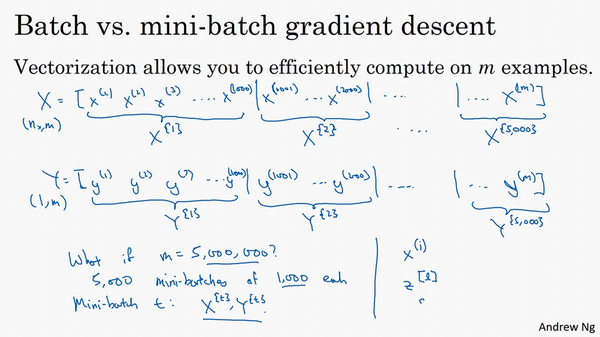 Batch vs. mini-batch gradient descent
Vectorization allows you to efficiently compute on m examples.
X = [x^(1) x^(2) x^(3) .... x^(1000) | x^(1001) ... x^(2000) | .... | ... x^(m)]
(n_x, m) X^{1} X^{2} .... X^{5,000}
Y = [y^(1) y^(2) y^(3) ... y^(1000) | y^(1001) ... y^(2000) | .... | ... y^(m)]
(1, m) Y^{1} Y^{2} Y^{5,000}
What if m = 5,000,000?
5,000 mini-batches of 1,000 each
Mini-batch t: X^{t}, Y^{t}
x^(i)
z^[l]
Andrew Ng